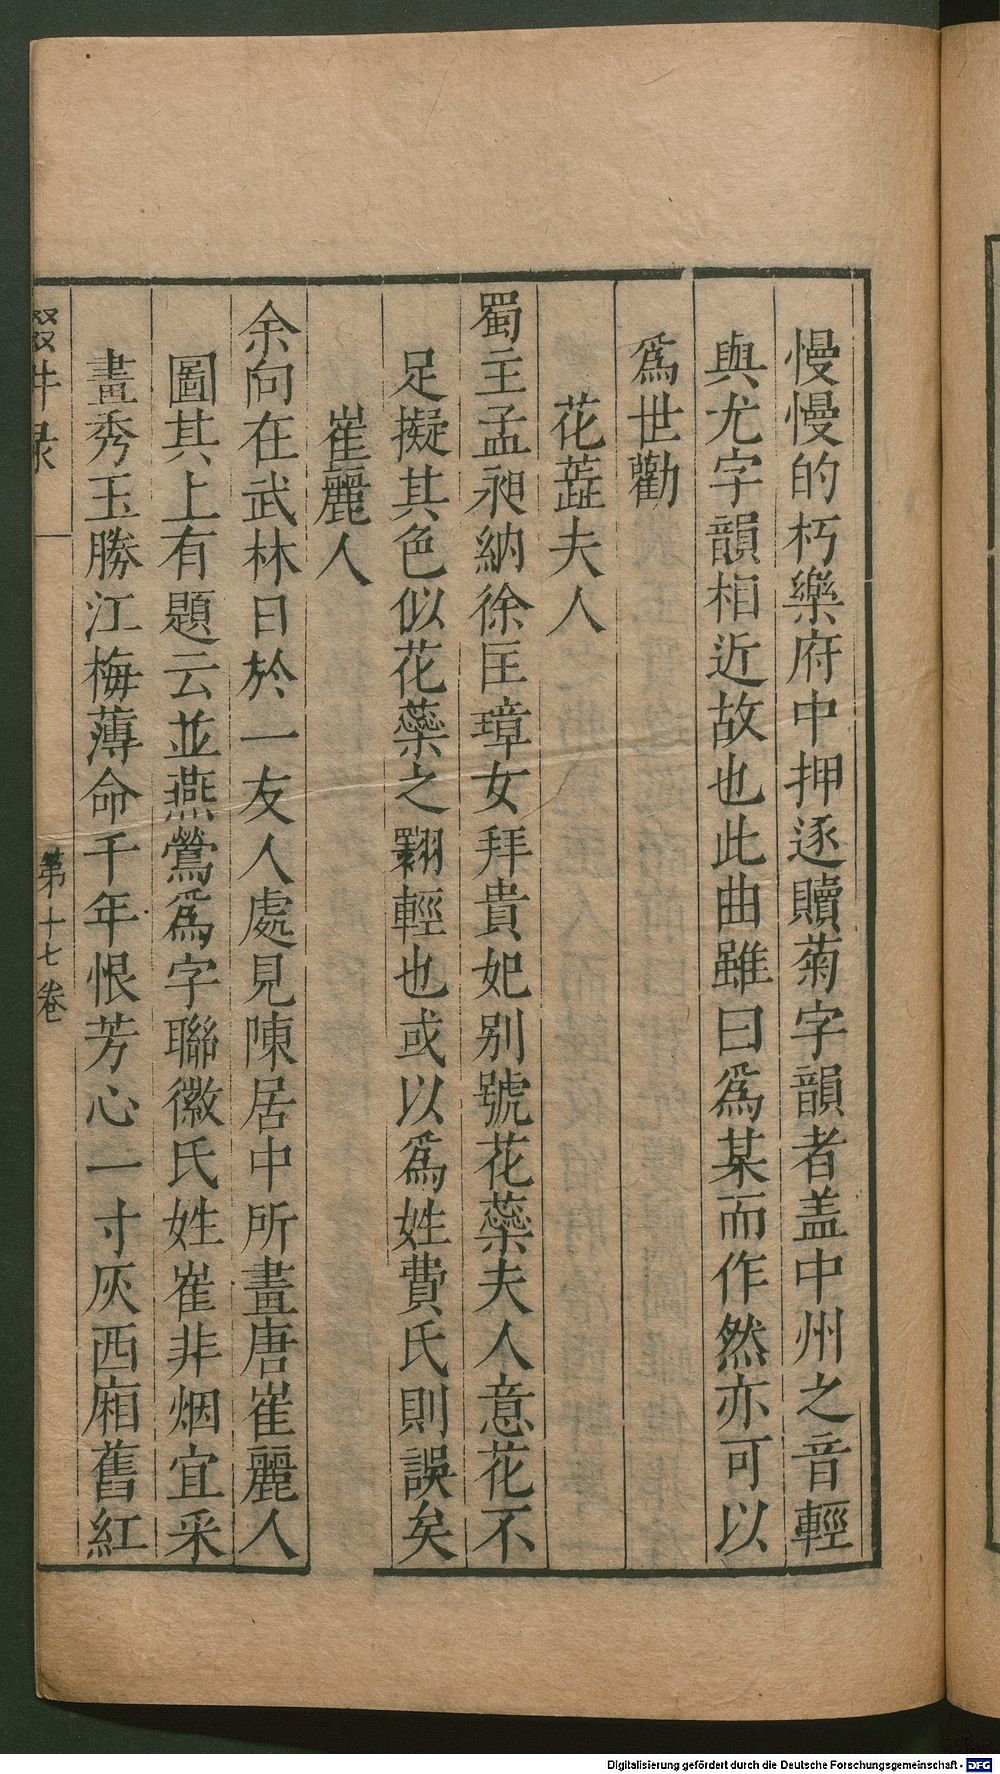 慢慢的朽樂府中押逐贖菊字韻者盖中州之音輕
與尤字韻相近故也此曲雖曰爲某而作然亦可以
爲世勸
花蘂夫人
蜀主孟昶納徐匡璋女拜貴妃别號花蘂夫人意花不
足擬其色似花蘂之翾輕也或以爲姓費氏則誤矣
崔麗人
余向在武林日於一友人處見陳居中所畫唐崔麗人
圖其上有題云並燕鶯爲字聯徽氏姓崔非烟宜采
畫秀玉勝江梅薄命千年恨芳心一寸灰西廂舊紅
第十七卷
Digitalisierung gefördert durch die Deutsche Forschungsgemeinschaft - DFG